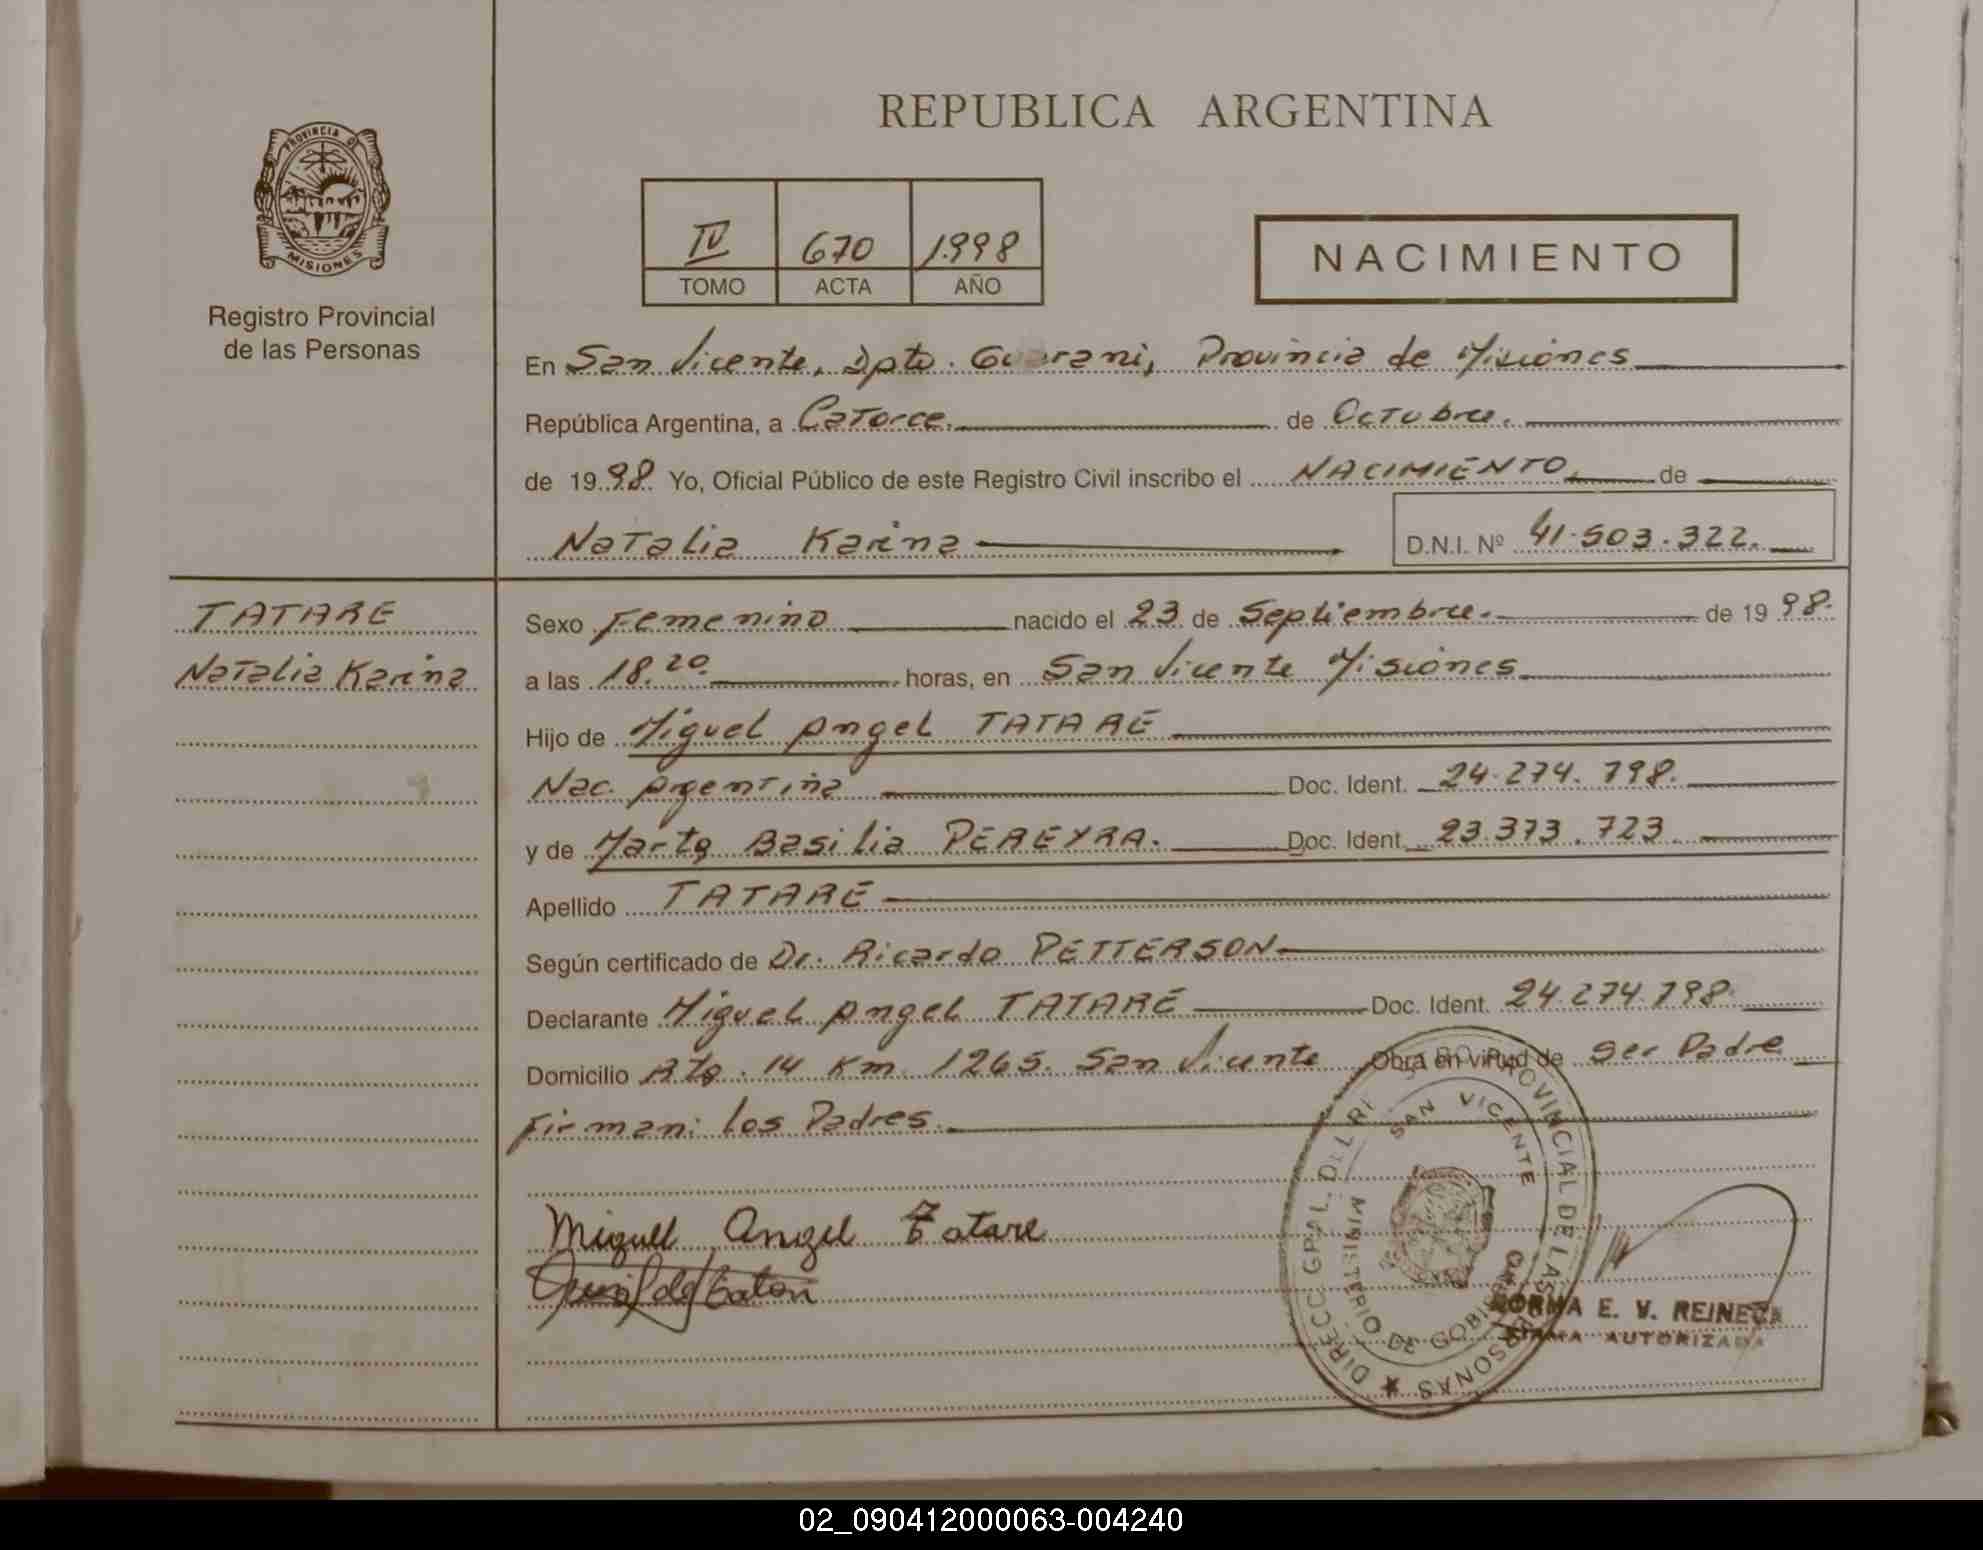 REPUBLICA ARGENTINA
PROVINCIA DE
MISIONES
Registro Provincial
de las Personas
IV 670 1.998
TOMO ACTA AÑO
NACIMIENTO
En San Vicente, Dpto. Guarani, Provincia de Misiones
República Argentina, a Catorce. de Octubre.
de 1998. Yo, Oficial Público de este Registro Civil inscribo el NACIMIENTO. de
Natalia Karina D.N.I. Nº 41.503.322.
TATARE
Natalia Karina
Sexo Femenino nacido el 23 de Septiembre. de 1998.
a las 18.20. horas, en San Vicente Misiones
Hijo de Miguel Angel TATARE
Nac. Argentina Doc. Ident. 24.274.798.
y de Marta Basilia PEREYRA. Doc. Ident. 23.373.723
Apellido TATARE
Según certificado de Dr. Ricardo PETTERSON
Declarante Miguel Angel TATARE Doc. Ident. 24.274.798.
Domicilio Rta. 14 Km. 1265. San Vicente Obra en virtud de ser Padre
Firman: los Padres.
Miguel Angel Tatare
DIRECC GRAL. DEL PROVINCIAL DE LAS PERSONAS
SAN VICENTE
MINISTERIO DE GOBIERNO
NORMA E. V. REINECK
FIRMA AUTORIZADA
02_090412000063-004240